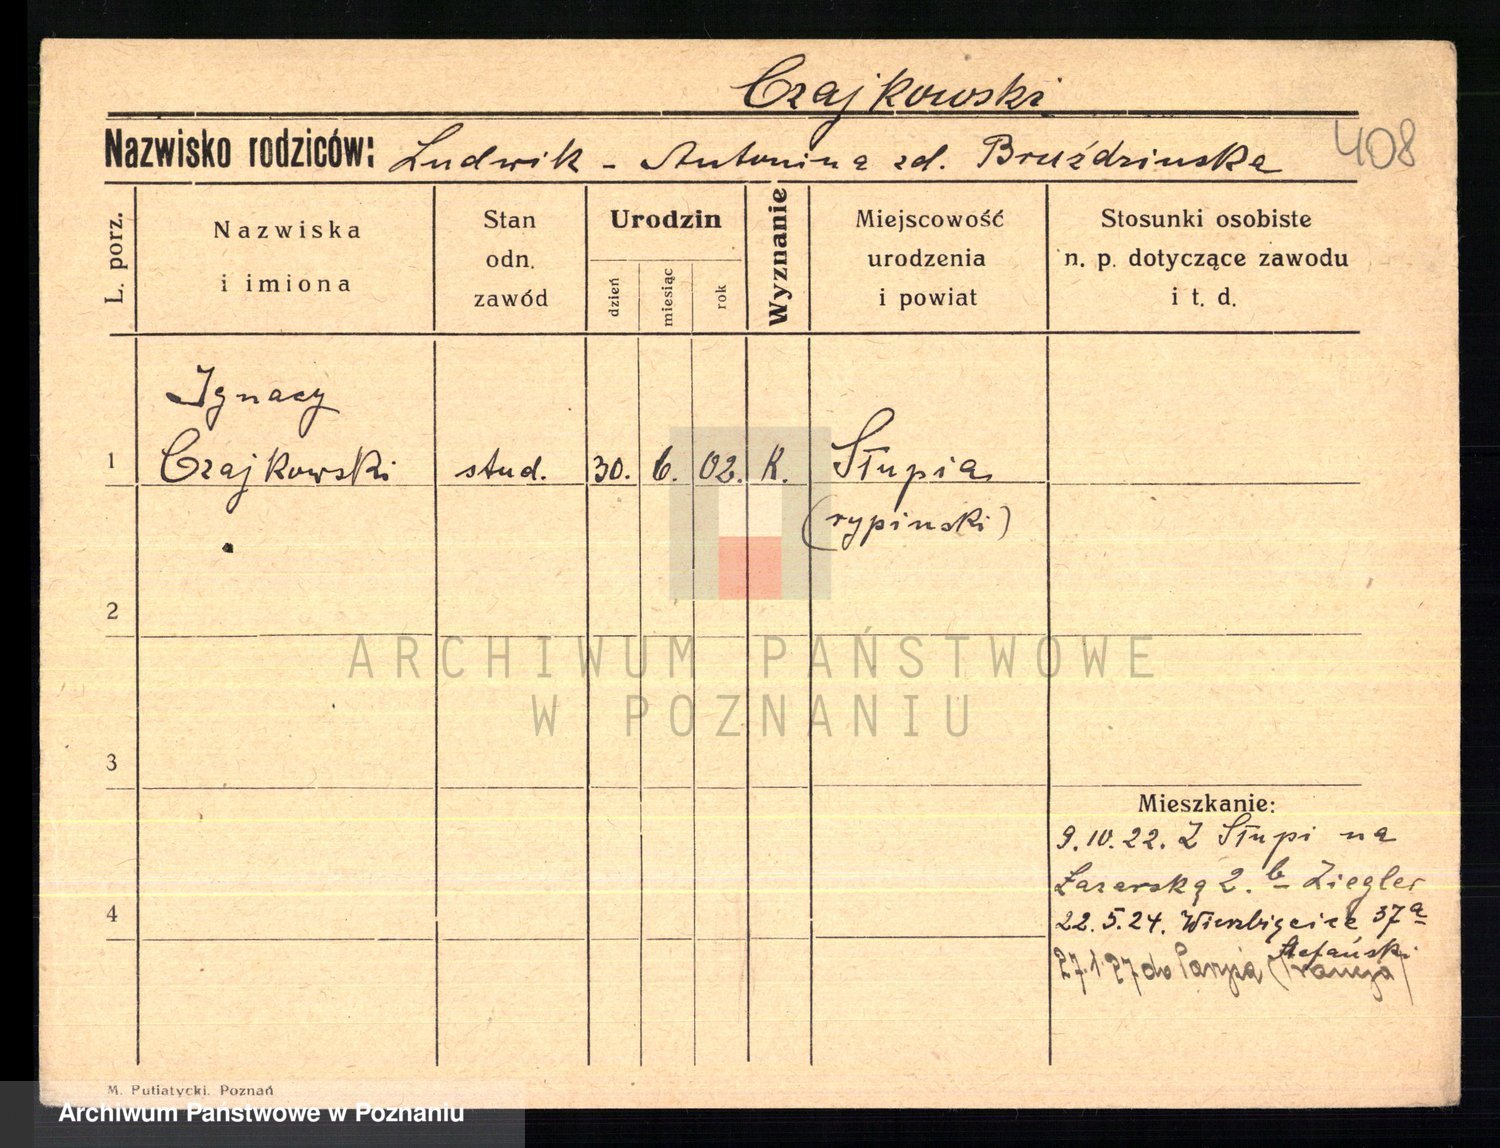 Czajkowski
408
Nazwisko rodziców: Ludwik - Antonina zd. Bruździnska
L. porz.
Nazwiska
i imiona
Stan
odn.
zawód
Urodzin
dzień
miesiąc
rok
Wyznanie
Miejscowość
urodzenia
i powiat
Stosunki osobiste
n. p. dotyczące zawodu
i t. d.
Ignacy
1 Czajkowski stud. 30. 6. 02. K. Słupia
(rypinski)
2
3
4
Mieszkanie:
9.10.22. Z Słupi na
Łazarską 2. b Ziegler
22.5.24. Wierzbięcice 37a
Stefański
27.1.27 do Paryża (Francja)
M. Putiatycki. Poznań
ARCHIWUM PAŃSTWOWE
W POZNANIU
Archiwum Państwowe w Poznaniu